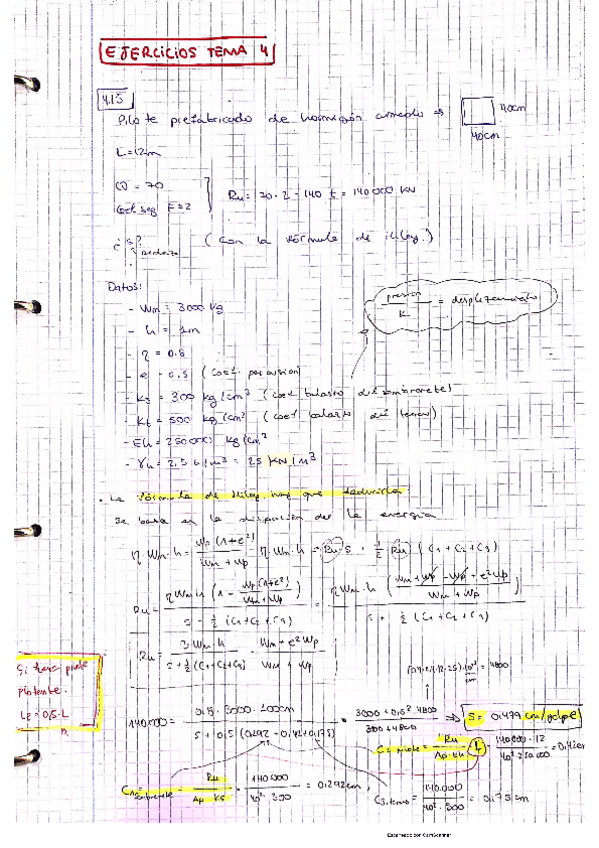 EJERCICIOS TEMA 4
4.15
Pilote prefabricado de hormigón armado ⇒
40cm
40cm
L=12m
Q = 70
coef. seg F=2
Ru = 70 · 2 = 140 t = 140000 KN
(Con la fórmula de Hiley.)
Datos:
- Wm = 3000 Kg
- h = 1m
presión / K = desplazamiento
- η = 0.8
- e = 0.5 (coef. percusión)
- Ks = 300 kg/cm³ (coef balasto del sombrerete)
- Kt = 500 kg/cm³ (coef balasto del terreno)
- Eh = 250000 kg/cm²
- γh = 2.5 t/m³ = 25 KN/m³
• La fórmula de Hiley hay que deducirla
Se basa en la disipación de la energía
η Wm · h = Wp (1+e²) / Wm + Wp η · Wm · h = Ru · S + 1/2 Ru (C1 + C2 + C3)
Ru = η Wm h (1 - Wp(1+e²) / Wm+Wp) / S + 1/2 (C1+C2+C3) = η Wm · h (Wm+Wp - Wp - e²Wp / Wm + Wp) / S + 1/2 (C1+C2+C3)
Ru = η Wm h / S + 1/2 (C1+C2+C3) · Wm + e² Wp / Wm + Wp
= 4800
Si fuese pilote
flotante.
Lp = 0,5 · L
140.000 = 0,8 · 3000 · 100cm / S + 0,5 (0,292 + 0,42 + 0,175) · 3000 + 0,5² · 4800 / 300 + 4800 ⇒ S = 0,479 cm/golpe
C2 pilote = Ru / Ap · Eh · L = 140.000 · 12 / 40² · 250.000 = 0,42cm
C1 sombrerete = Ru / Ap · Ks = 140.000 / 40² · 300 = 0,292cm
C3 terreno = 140.000 / 40² · 500 = 0,175 cm
Escaneado con CamScanner